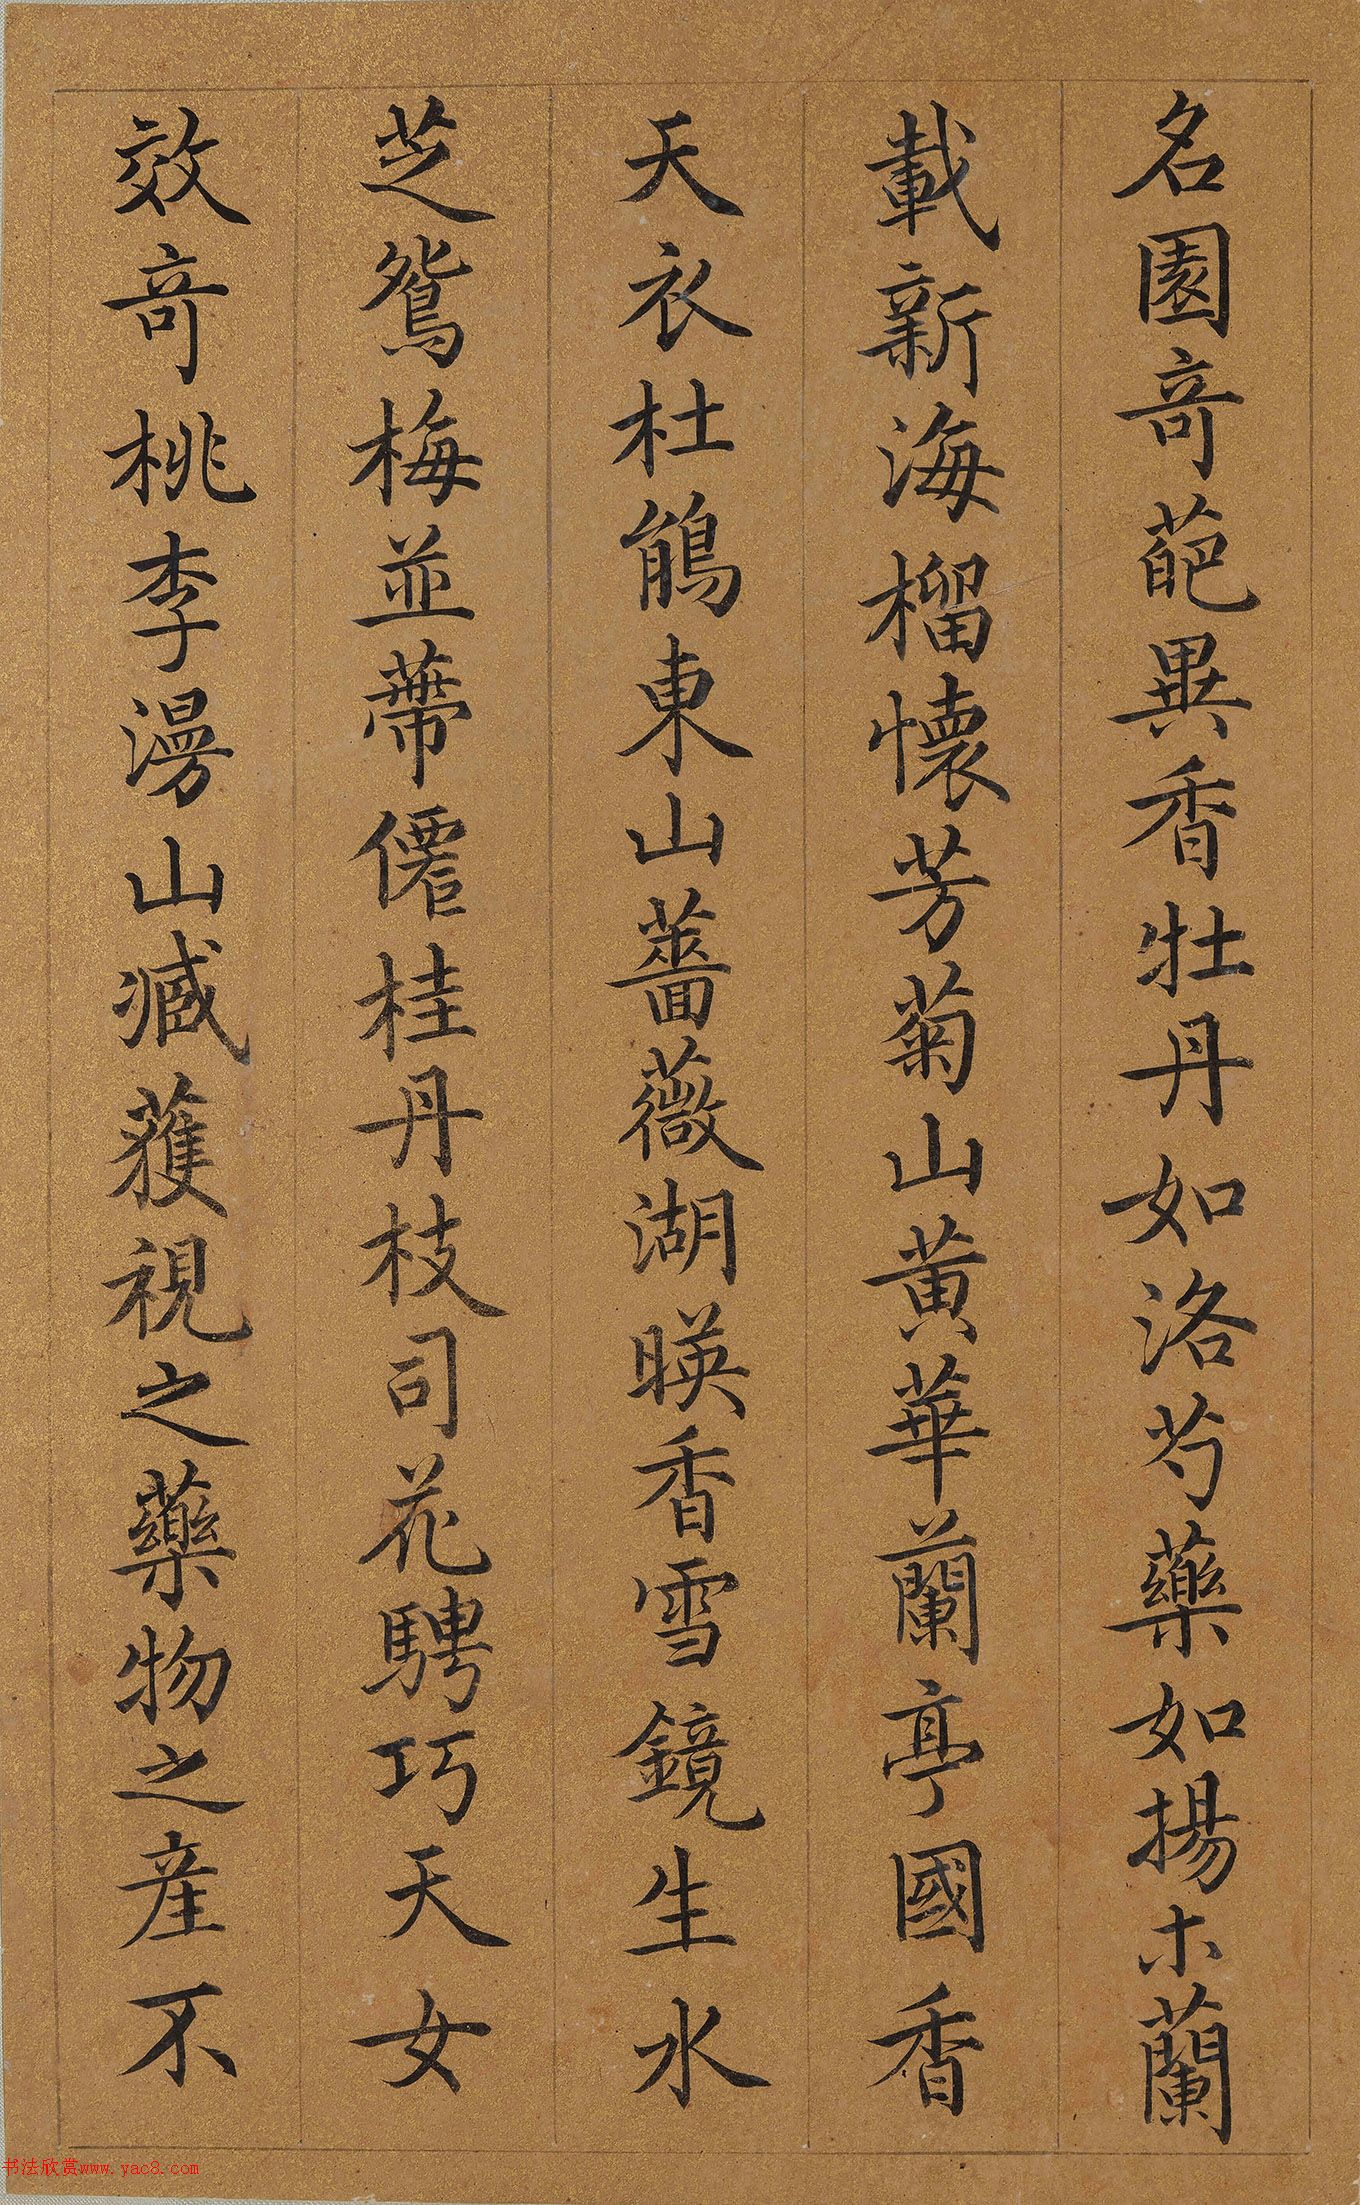 名園奇葩異香牡丹如洛芍藥如揚木蘭
載新海榴懷芳菊山黄華蘭亭國香
天衣杜鵑東山薔薇湖暎香雪鏡生水
芝鴛梅並蔕僊桂丹枝司花騁巧天女
效奇桃李漫山臧獲視之藥物之産不
书法欣赏www.yac8.com